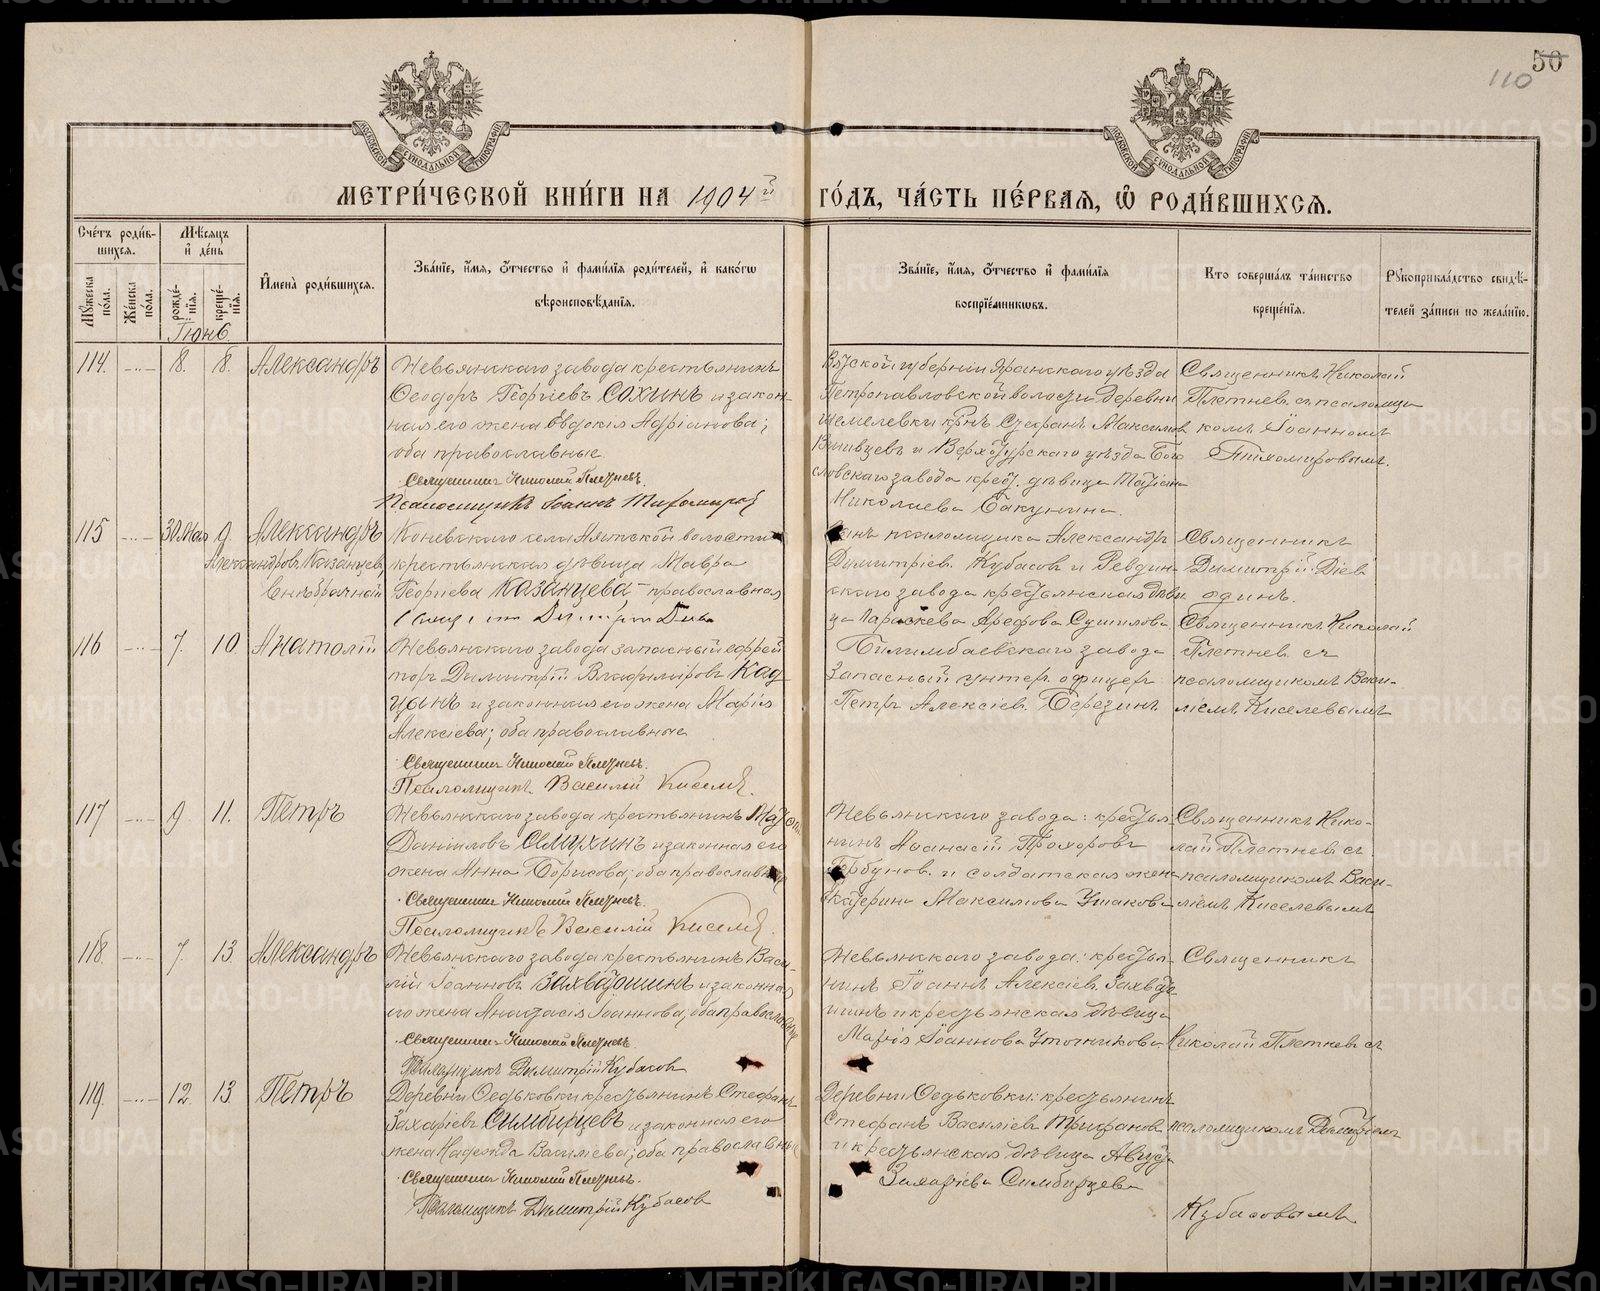 50
110
МОСКОВСКОЙ СѴНОДАЛЬНОЙ ТИПОГРАФІИ
МОСКОВСКОЙ СѴНОДАЛЬНОЙ ТИПОГРАФІИ
МЕТРИ́ЧЕСКОЙ КНИ́ГИ НА 1904й ГО́ДЪ, ЧА́СТЬ ПЕ́РВАЯ, Ѿ РОДИ́ВШИХСЯ.
Сче́тъ роди́в-
шихся.
Мꙋжеска по́ла.
Же́нска по́ла.
Мѣ́сяцъ
и҆ де́нь
рожде́-нїя.
креще́-нїя.
И҆мена̀ роди́вшихся.
Зва́нїе, и҆́мя, ѻ҆́тчество и҆ фами́лїя роди́телей, и҆ како́гѡ
вѣроисповѣ́данїя.
Зва́нїе, и҆́мя, ѻ҆́тчество и҆ фами́лїя
воспрїе́мникѡвъ.
Кто̀ соверша́лъ та́инство
креще́нїя.
Рꙋкоприкла́дство свидѣ́-
телей за́писи по жела́нїю.
Іюнь
114. 8. 8. Александръ
Невьянскаго завода крестьянинъ
Ѳеодоръ Георгіевъ Сохинъ и закон-
ная его жена Евдокія Адріанова;
оба православные.
Священникъ Николай Плетневъ.
Псаломщикъ Іоаннъ Тихомировъ
Вятской губерніи Яранскаго уѣзда
Петропавловской волости деревни
Шемелевки крнъ Стефанъ Максимов
и Верхотурскаго уѣзда Бого
словскаго завода крест. дѣвица
Николаева Бакунина.
Священникъ Николай
Плетневъ съ псаломщи
комъ Іоанномъ
Тихомировымъ.
115 30 Мая 9. Александръ
Александровъ Казанцевъ,
внѣбрачный
Коневскаго села Аятской волости
крестьянская дѣвица Мавра
Георгіева Казанцева православная
Димитріевъ Кубасовъ и Ревдин
скаго завода крестьянская дѣви
ца Параскева Арефова Сушилова
Священникъ
Димитрій Діевъ
одинъ.
116 7. 10. Анатолій
Невьянскаго завода запасный ефрей
торъ Димитрій Владиміровъ Кад
цынъ и законная его жена Марія
Алексіева; оба православные
Священникъ Николай Плетневъ.
Псаломщикъ Василій Киселевъ.
Билимбаевскаго завода
запасный унтеръ офицеръ
Петръ Алексіевъ Березинъ.
Священникъ Николай
Плетневъ съ
псаломщикомъ Васи-
ліемъ Киселевымъ
117 9. 11. Петръ
Невьянскаго завода крестьянинъ
Даніиловъ и законная его
жена Анна Борисова; оба православные
Священникъ Николай Плетневъ.
Псаломщикъ Василій Киселевъ.
Невьянскаго завода: крестья
нинъ Аѳанасій Прохоровъ
Горбуновъ и солдатская жена
Екатерина Максимова Ушакова
Священникъ Нико-
лай Плетневъ съ
псаломщикомъ Васи-
ліемъ Киселевымъ
118. 7. 13. Александръ
Невьянскаго завода крестьянинъ Васи-
лій Іоанновъ Захваташинъ и законная
его жена Анастасія Іоаннова; оба православные
Священникъ Николай Плетневъ.
Псаломщикъ Димитрій Кубасовъ
Невьянскаго завода: крестья
нинъ Іоаннъ Алексіевъ Захвата
шинъ и крестьянская дѣвица
Марія Іоаннова Уточникова.
Священникъ
Николай Плетневъ съ
119. 12. 13 Петръ
Деревни Ѳедьковки крестьянинъ Стефанъ
Захаріевъ Симбирцевъ и законная его
жена Надежда Васильева; оба православные
Священникъ Николай Плетневъ.
Псаломщикъ Димитрій Кубасовъ
Деревни Ѳедьковки: крестьянинъ
Стефанъ Василіевъ Трифановъ
и крестьянская дѣвица Августа
Захаріева Симбирцева
псаломщикомъ Димитріемъ
Кубасовымъ
METRIKI.GASO-URAL.RU